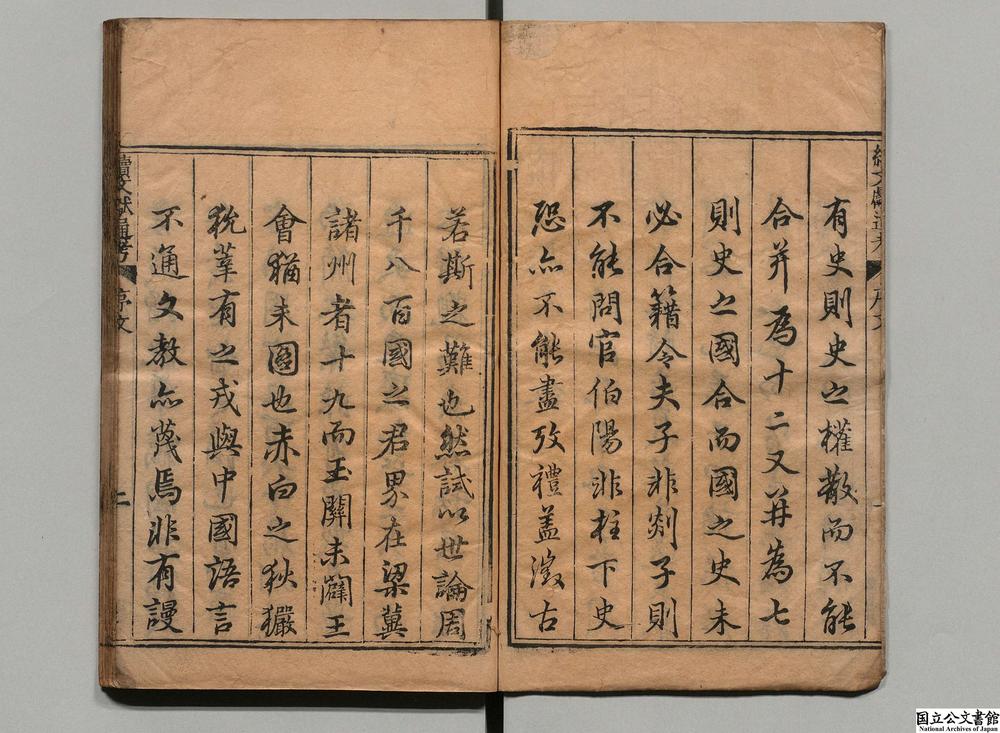 有史則史之權散而不能
合并為十二又并為七
則史之國合而國之史未
必合籍令夫子非郯子則
不能問官伯陽非柱下史
恐亦不能盡攷禮蓋徵古
若斯之難也然試以世論周
千八百國之君界在梁冀
諸州者十九而玉關未闢王
會猶未圖也赤白之狄玁
狁葷有之戎與中國語言
不通文教亦蔑焉非有謾
續文獻通考
序文
二
国立公文書館
National Archives of Japan